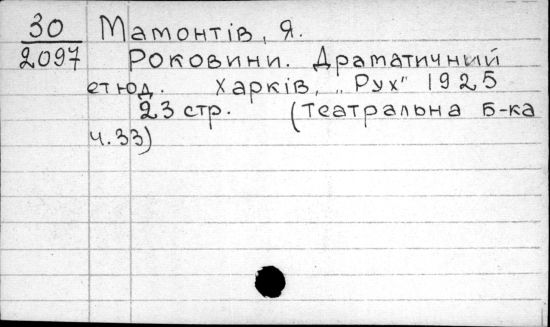 30 Мамонтів, Я.
2097 Роковини. Драматичний
етюд. Харків, „Рух" 1925
23 стр. (Театральна Б-ка
ч.33)